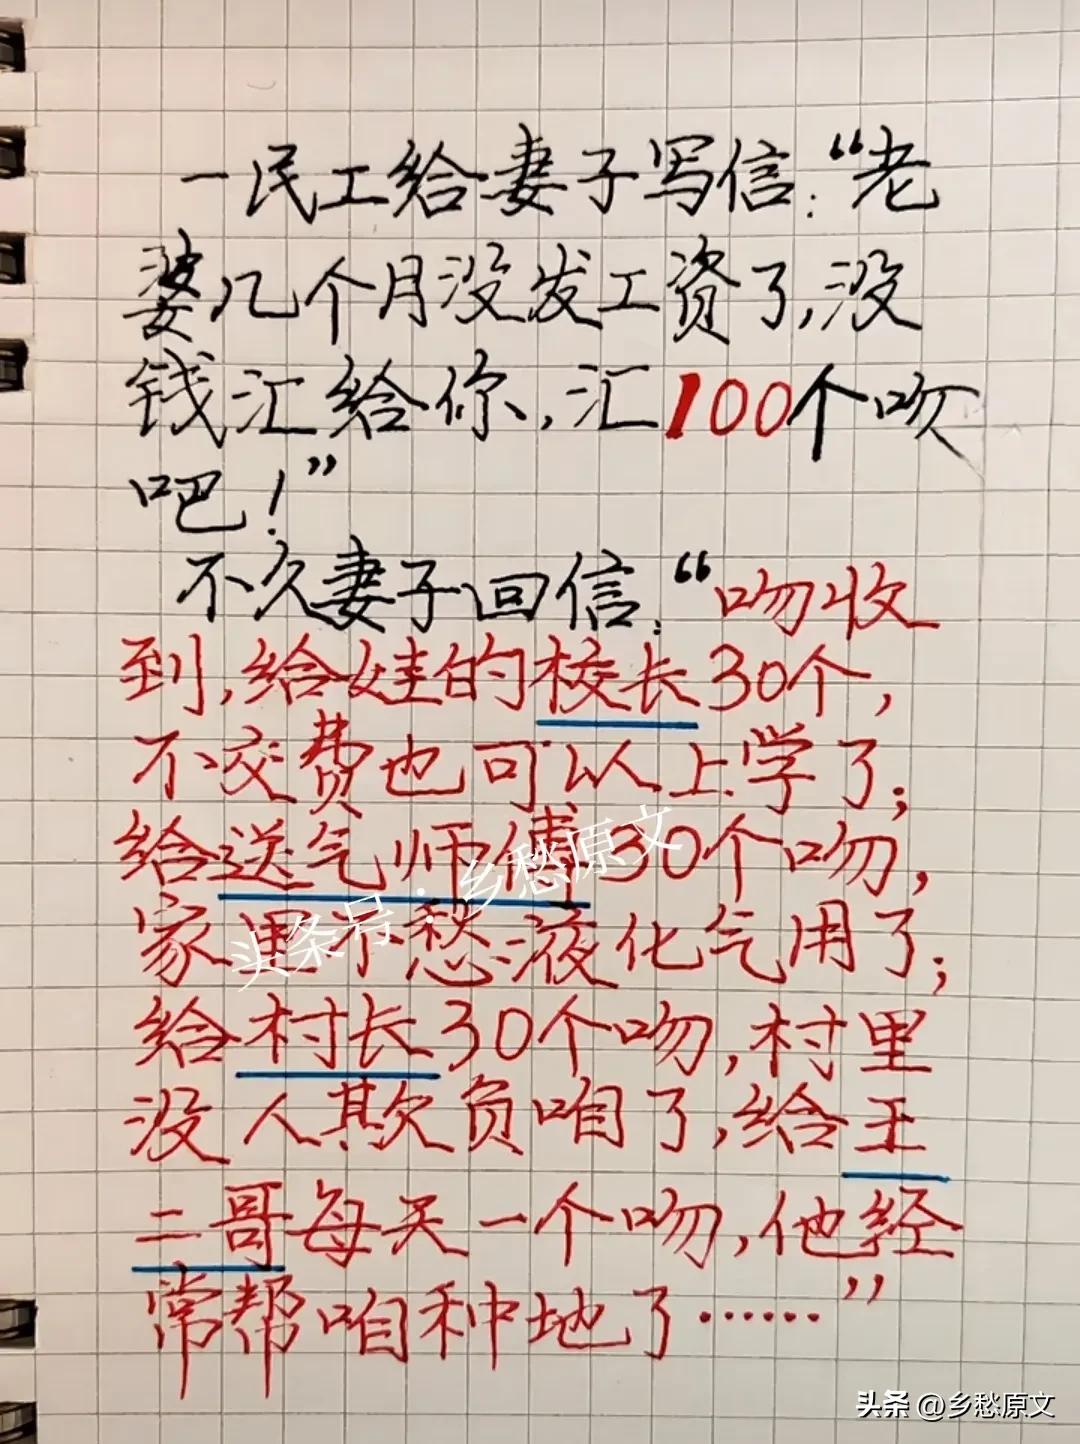 一民工给妻子写信："老
婆几个月没发工资了,没
钱汇给你,汇100个吻
吧！"
不久妻子回信："吻收
到,给娃的校长30个,
不交费也可以上学了;
给送气师傅30个吻,
家里不愁液化气用了;
给村长30个吻,村里
没人欺负咱了,给王
二哥每天一个吻,他经
常帮咱种地了……"
头条号：乡愁原文
头条 @乡愁原文